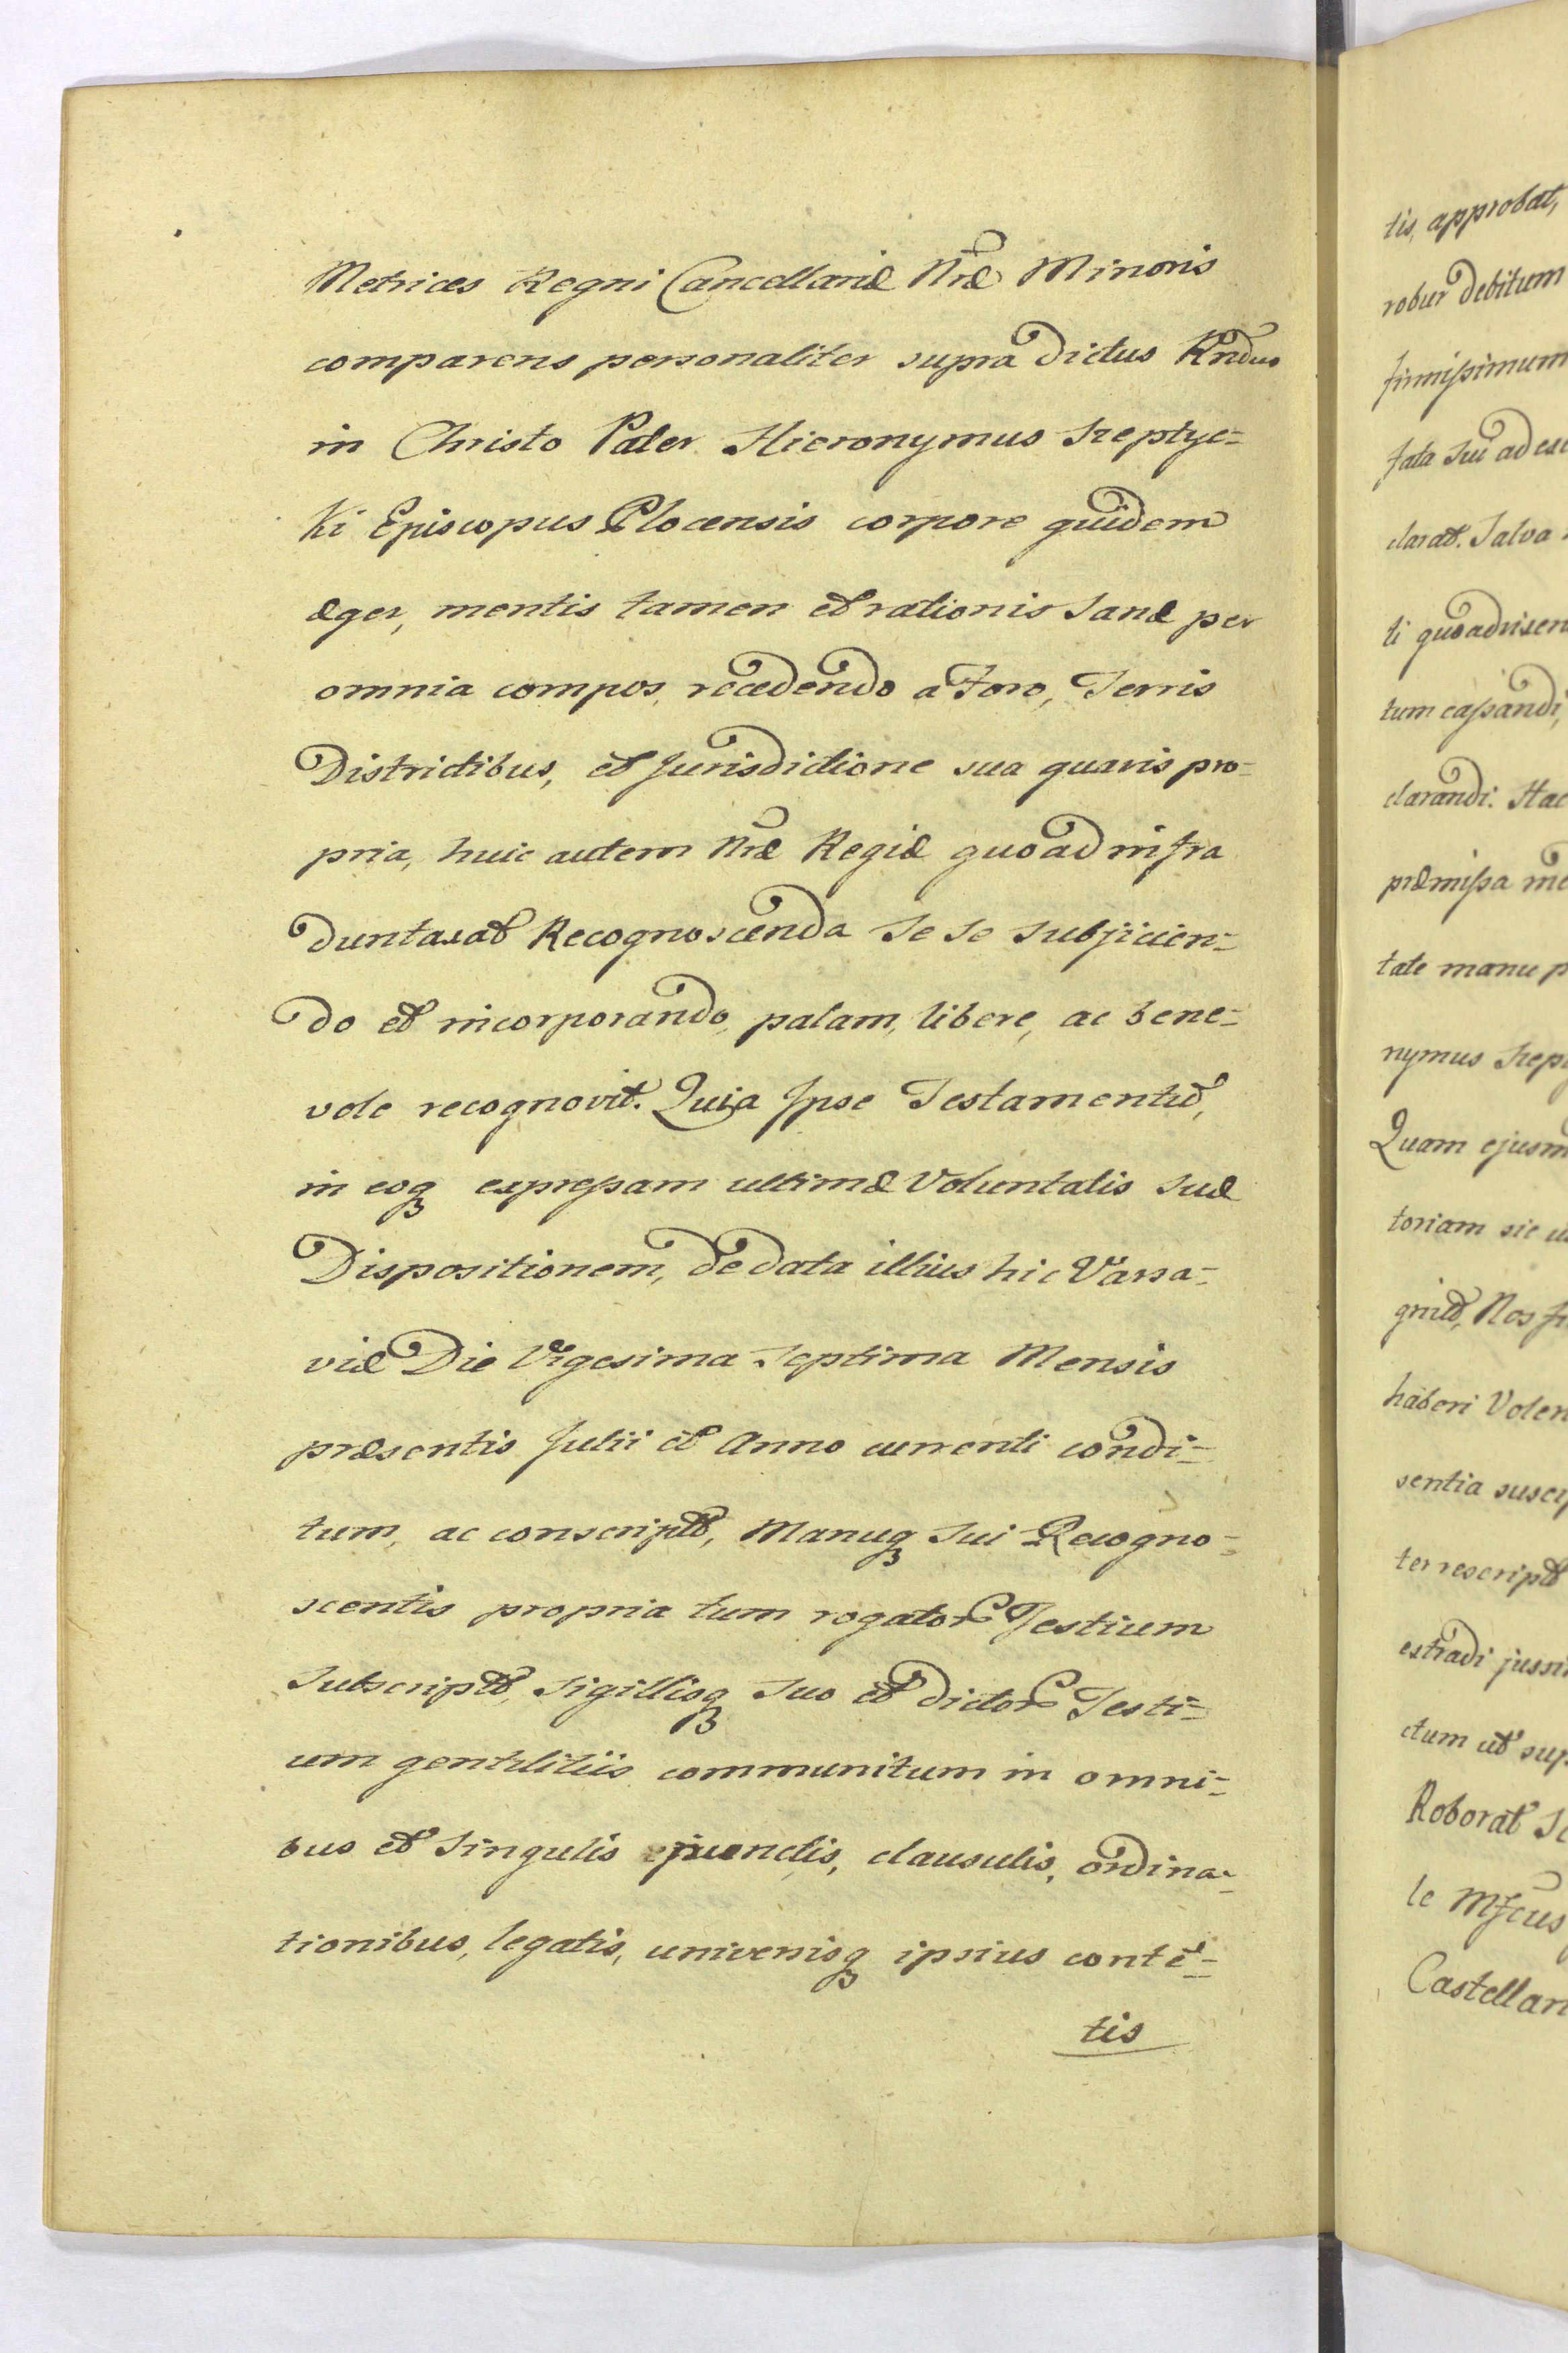 Metrices Regni Cancellariæ Nræ Minoris
comparens personaliter supra dictus Rndus
in Christo Pater Hieronymus Szeptyc-
Ki Episcopus Plocensis corpore quidem
æger, mentis tamen et rationis sanæ per
omnia compos, recedendo a Foro, Terris
Districtibus, et Jurisdictione sua quavis pro-
pria, huic autem Nræ Regiæ quoad infra
duntaxat Recognoscenda se se subjicien-
do et incorporando, palam, libere, ac bene-
vole recognovit. Quia Ipse Testamentu,
in eoq expressam ultimæ Voluntatis suæ
Dispositionem, de data illius hic Varsa-
viæ Die Vigesima septima Mensis
præsentis Julii et Anno currenti condi-
tum, ac conscriptu, Manuq sui Recogno-
scentis propria tum rogator Testium
subscriptu, sigillisq suo et dictor Testi-
um gentilitiis communitum in omni-
bus et singulis punctis, clausulis, ordina-
tionibus, legatis, universisq ipsius conte-
tis
tis, approbat,
robur debitum
firmissimum
fata sui ad
clarat. Salva
li quoad
tum cassandi,
clarandi. Hac
præmissa
tate manu p
nymus Szep
Quam ejusm
toriam sic
gnitu, Nos
haberi Volen
sentia suscip
ter rescriptu
extradi jussi
ctum ut sup
Roborat
le Mfcus
Castellan